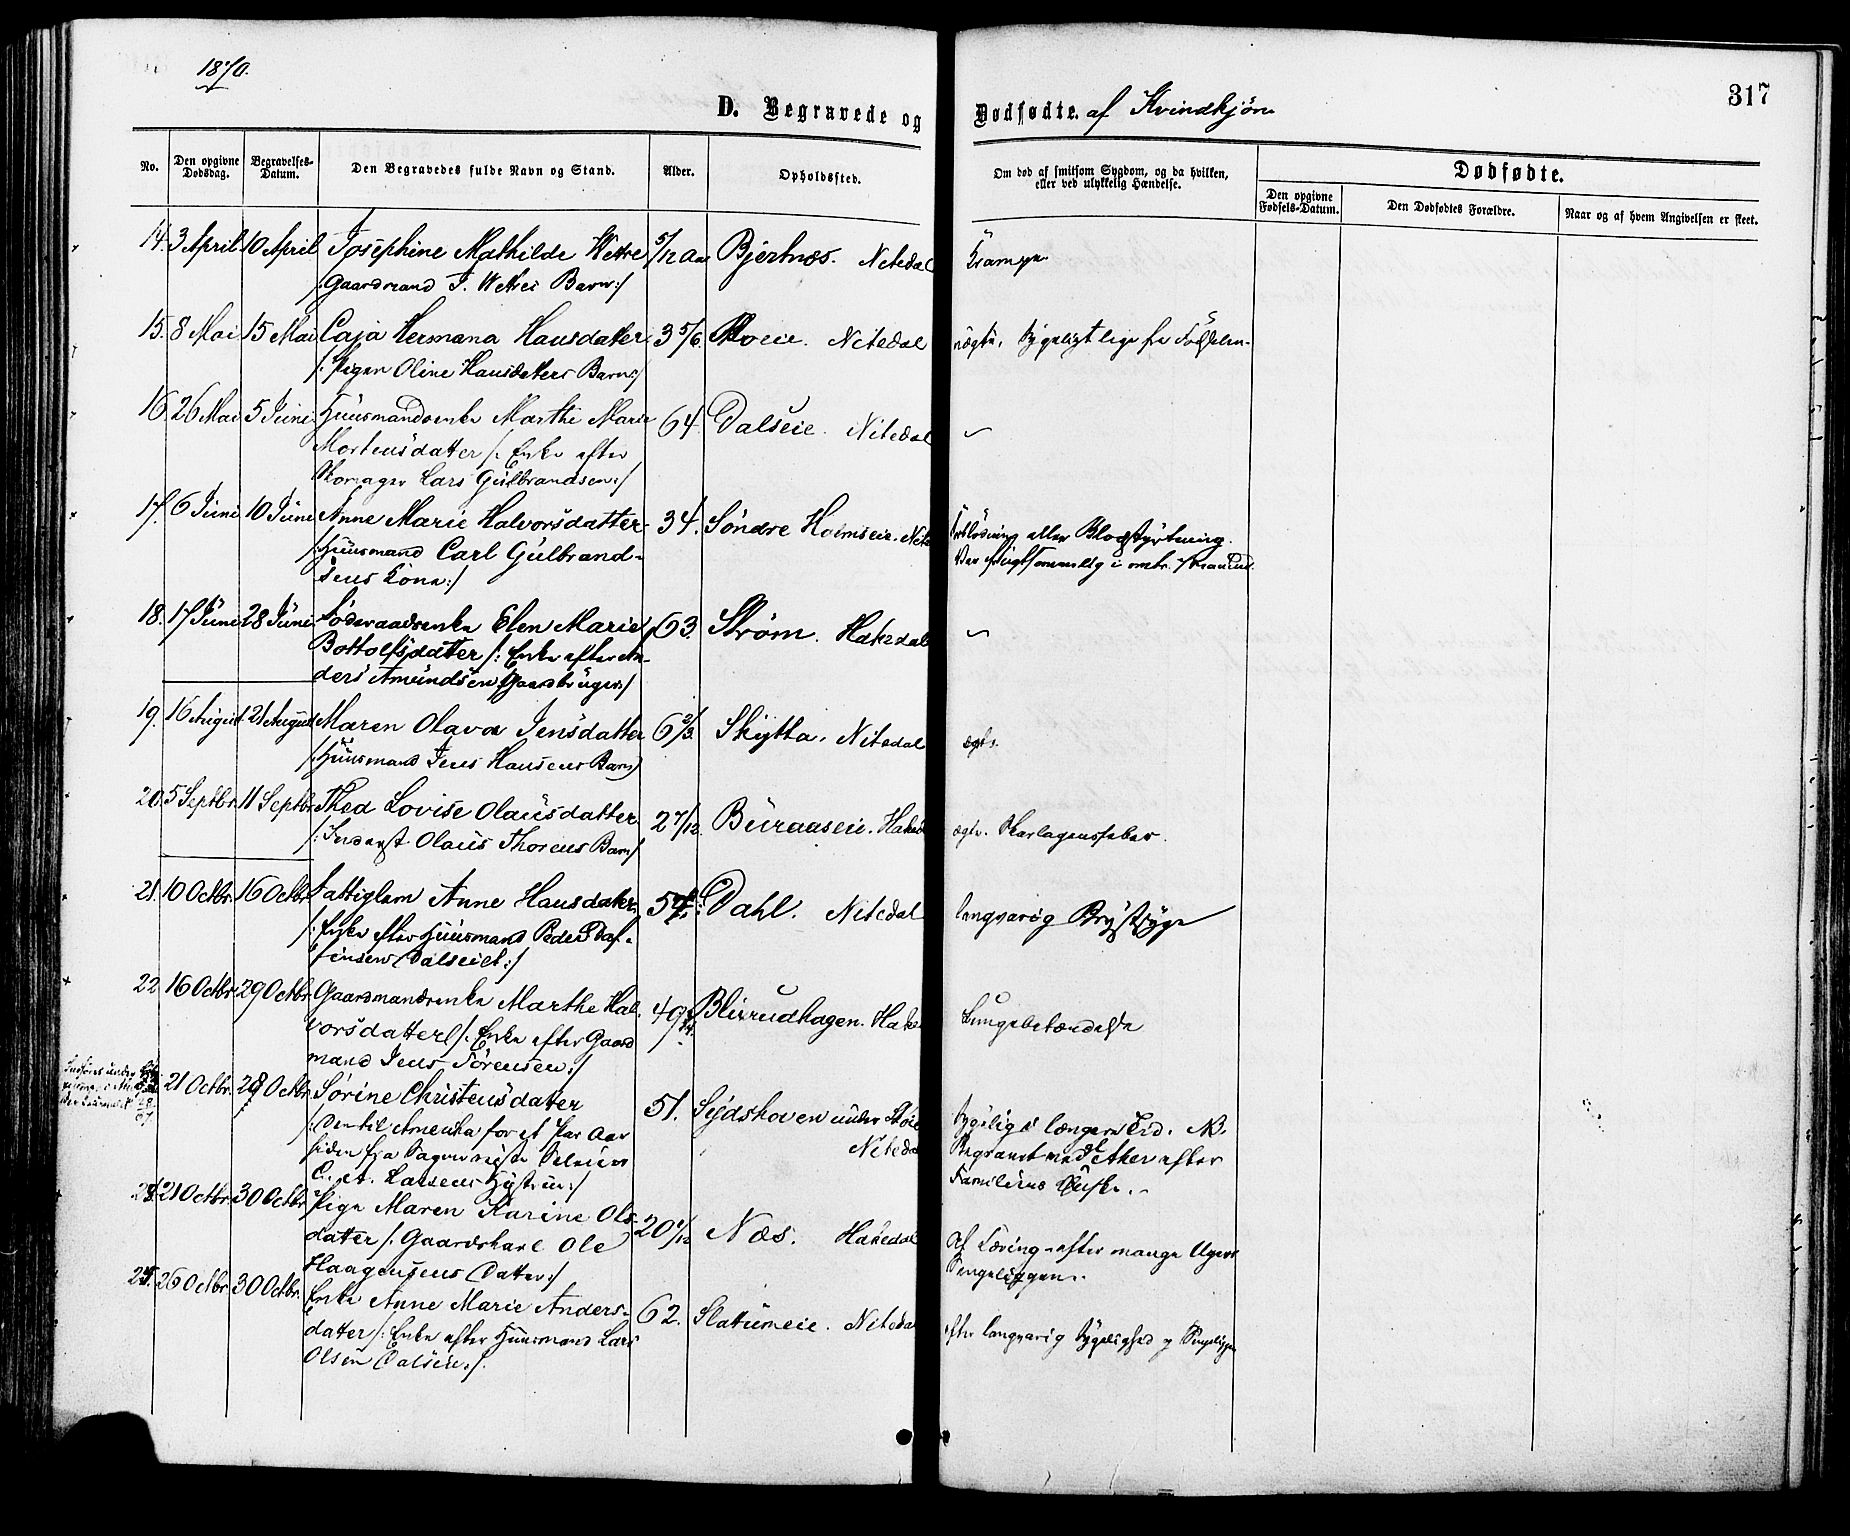 1870.
317
D. Begravede og Dødfødte. af Kvindkjøn
No.
Den opgivne Dødsdag.
Begravelses-Datum.
Den Begravedes fulde Navn og Stand.
Alder.
Opholdssted.
Om død af smitsom Sygdom, og da hvilken, eller ved ulykkelig Hændelse.
Dødfødte.
Den opgivne Fødsels-Datum.
Den Dødfødtes Forældre.
Naar og af hvem Angivelsen er skeet.
14. 3 April 10 April Josephine Mathilde Wetre 5/12 Aar Bjertnæs. Nitedal Krampe
/: Gaardmand J. Wetres Barn :/
15. 8 Mai 15 Mai Caja Hermana Hansdatter 3 5/6 Moeie. Nitedal uægte. Sygeligt lige fra Fødselen.
/: Pigen Oline Hansdatters Barn :/
16. 26 Mai 5 Juni Huusmandsenke Marthe Marie 64. Dalseie. Nitedal
Mortensdatter /: Enke efter
Skomager Lars Gulbrandsen :/
17. 6 Juni 10 Juni Anne Marie Halvorsdatter 34. Søndre Holmseie. Nited eller Blodstyrtning.
/: Huusmand Carl Gulbrand-
sens Kone :/
18. 17 Juni 28 Juni Føderaadsenke Elen Marie 63. Strøm. Hakedal
Bottolfsdatter /: Enke efter An-
ders Amundsen Gaardbruger :/
19. 16 August 21 August Maren Olava Jensdatter 6 2/3 Skytta. Nitedal ægte.
/: Huusmand Jens Hansens Barn
20. 5 Septbr. 11 Septbr. Thea Lovise Olausdatter 2 7/12. Buraaseie. Haked ægte. Skarlagensfeber.
/: Inderst Olaus Thorens Barn /
21. 10 Octbr. 16 Octbr. Fattiglem Anne Hansdatter Dahl. Nitedal langvarig Brystsyge
/: Enke efter Huusmand Peder
Dalseiet :/
22. 16 Octbr. 29 Octbr. Gaardmandsenke Marthe Hal- 49 Blivrudhagen. Haked Lungebetændelse
vorsdatter /: Enke efter Gaard
mand Jens Sørensen :/
21 Octbr. 28 Octbr. Sørine Christensdatter 51. Sydskoven under Moe Sygelig i længere Tid. NB.
/: Den til Amerika for et Par Aar Nitedal Begravet ved V. Aker efter
siden fra Familiens Ønske.
C. A. Larsens Hustrue :/
24. 21 Octbr. 30 Octbr. Pige Maren Karine Ols- 20 1/12 Næs. Hakedal Af Tæring efter mange Ugers
datter /: Gaardskarl Ole Sengeliggen.
Haagensens Datter :/
25. 26 Octbr. 30 Octbr. Enke Anne Marie Anders- 62. Slatumeie. Nitedal efter langvarig Sygelighed og Sengeliggen
datter /: Enke efter Huusmand Lars
Olsen Dalseie :/.